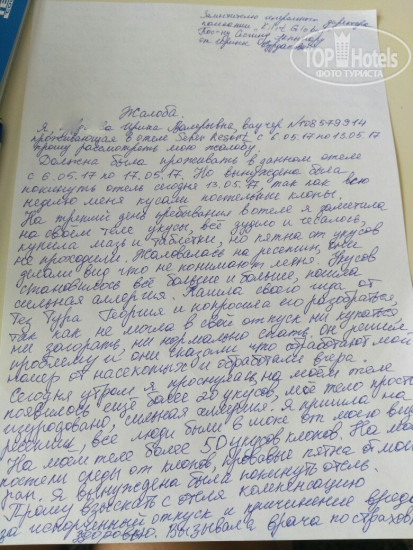 TopHotels
ФОТО ТУРИСТА
Жалоба.
Я Ирина Валерьевна, ваучер N
проживающая в отеле Seher Resort с 6.05.17 по 13.05.17
прошу рассмотреть мою жалобу.
Должна была проживать в данном отеле
с 6.05.17 по 17.05.17. Но вынуждена была
покинуть отель сегодня 13.05.17, так как всю
неделю меня кусали постельные клопы.
На третий день пребывания в отеле я заметила
на своём теле укусы, всё зудило и чесалось,
купила мазь и таблетки, но пятна от укусов
не проходили. Жаловалась на ресепшн, они
делали вид что не понимают меня. Укусов
становилось всё больше и больше, пошла
сильная аллергия. Нашла своего гида от
Tez Тура Георгия и попросила его разобраться,
так как не могла в свой отпуск ни купаться,
ни загорать, ни нормально спать, он решил
проблему и они сказали что обработают мой
номер от насекомых и обработали вчера.
Сегодня утром я проснулась, на моём теле
появилось ещё более 20 укусов, моё тело просто
изуродовано, сильная аллергия. Я пришла на
ресепшн, все люди были в шоке от моего вида
На моём теле более 50 укусов клопов. На моей
постели следы от клопов, кровавые пятна от моих
ран. Я вынуждена была покинуть отель.
Прошу взыскать с отеля компенсацию
за испорченный отпуск и причинение вреда
здоровью. Вызывала врача по страховке